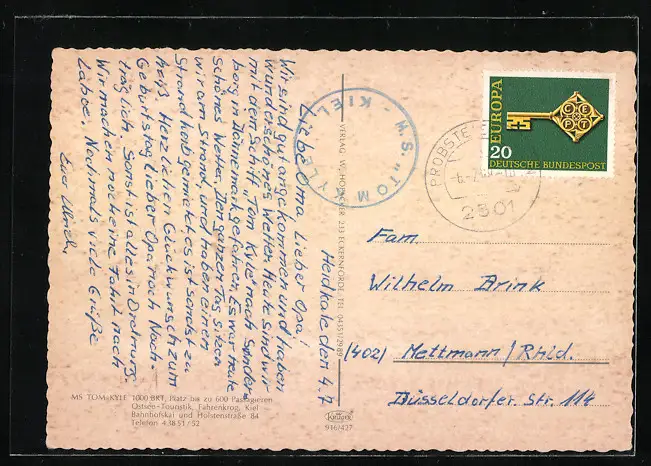 Heidkate den 4.7
Liebe Oma Lieber Opa!
Wir sind gut angekommen und haben
wunderschönes Wetter. Heute sind wir
mit dem Schiff „Tom Kyle nach Sonder-
borg in Dännemark gefahren. Es war heute
schönes Wetter. Den ganzen Tag sitzen
wir am Strand, und haben einen
Strandkorb gemietet es ist sonst zu
heiß. Herzlichen Glückwunsch zum
Geburtstag lieber Opa noch Nach-
träglich. Sonst ist alles in Ordnung.
Wir machen noch eine Fahrt nach
Laboe. Nochmals viele Grüße
Euer Ulrich
MS TOM KYLE 1000 BRT, Platz bis zu 600 Passagieren
Ostsee-Touristik, Fahrenkrog, Kiel
Bahnhofskai und Holstenstraße 84
Telefon 4 38 51 / 52
VERLAG W. HOFFACKER 233 ECKERNFÖRDE, TEL. 04351/2989
Krüger
916/427
M.S. „TOM KYLE" - KIEL
PROBSTE
2301
EUROPA
CEPT
20
DEUTSCHE BUNDESPOST
Fam.
Wilhelm Brink
(402) Mettmann/Rhld.
Düsseldorfer. Str. 114